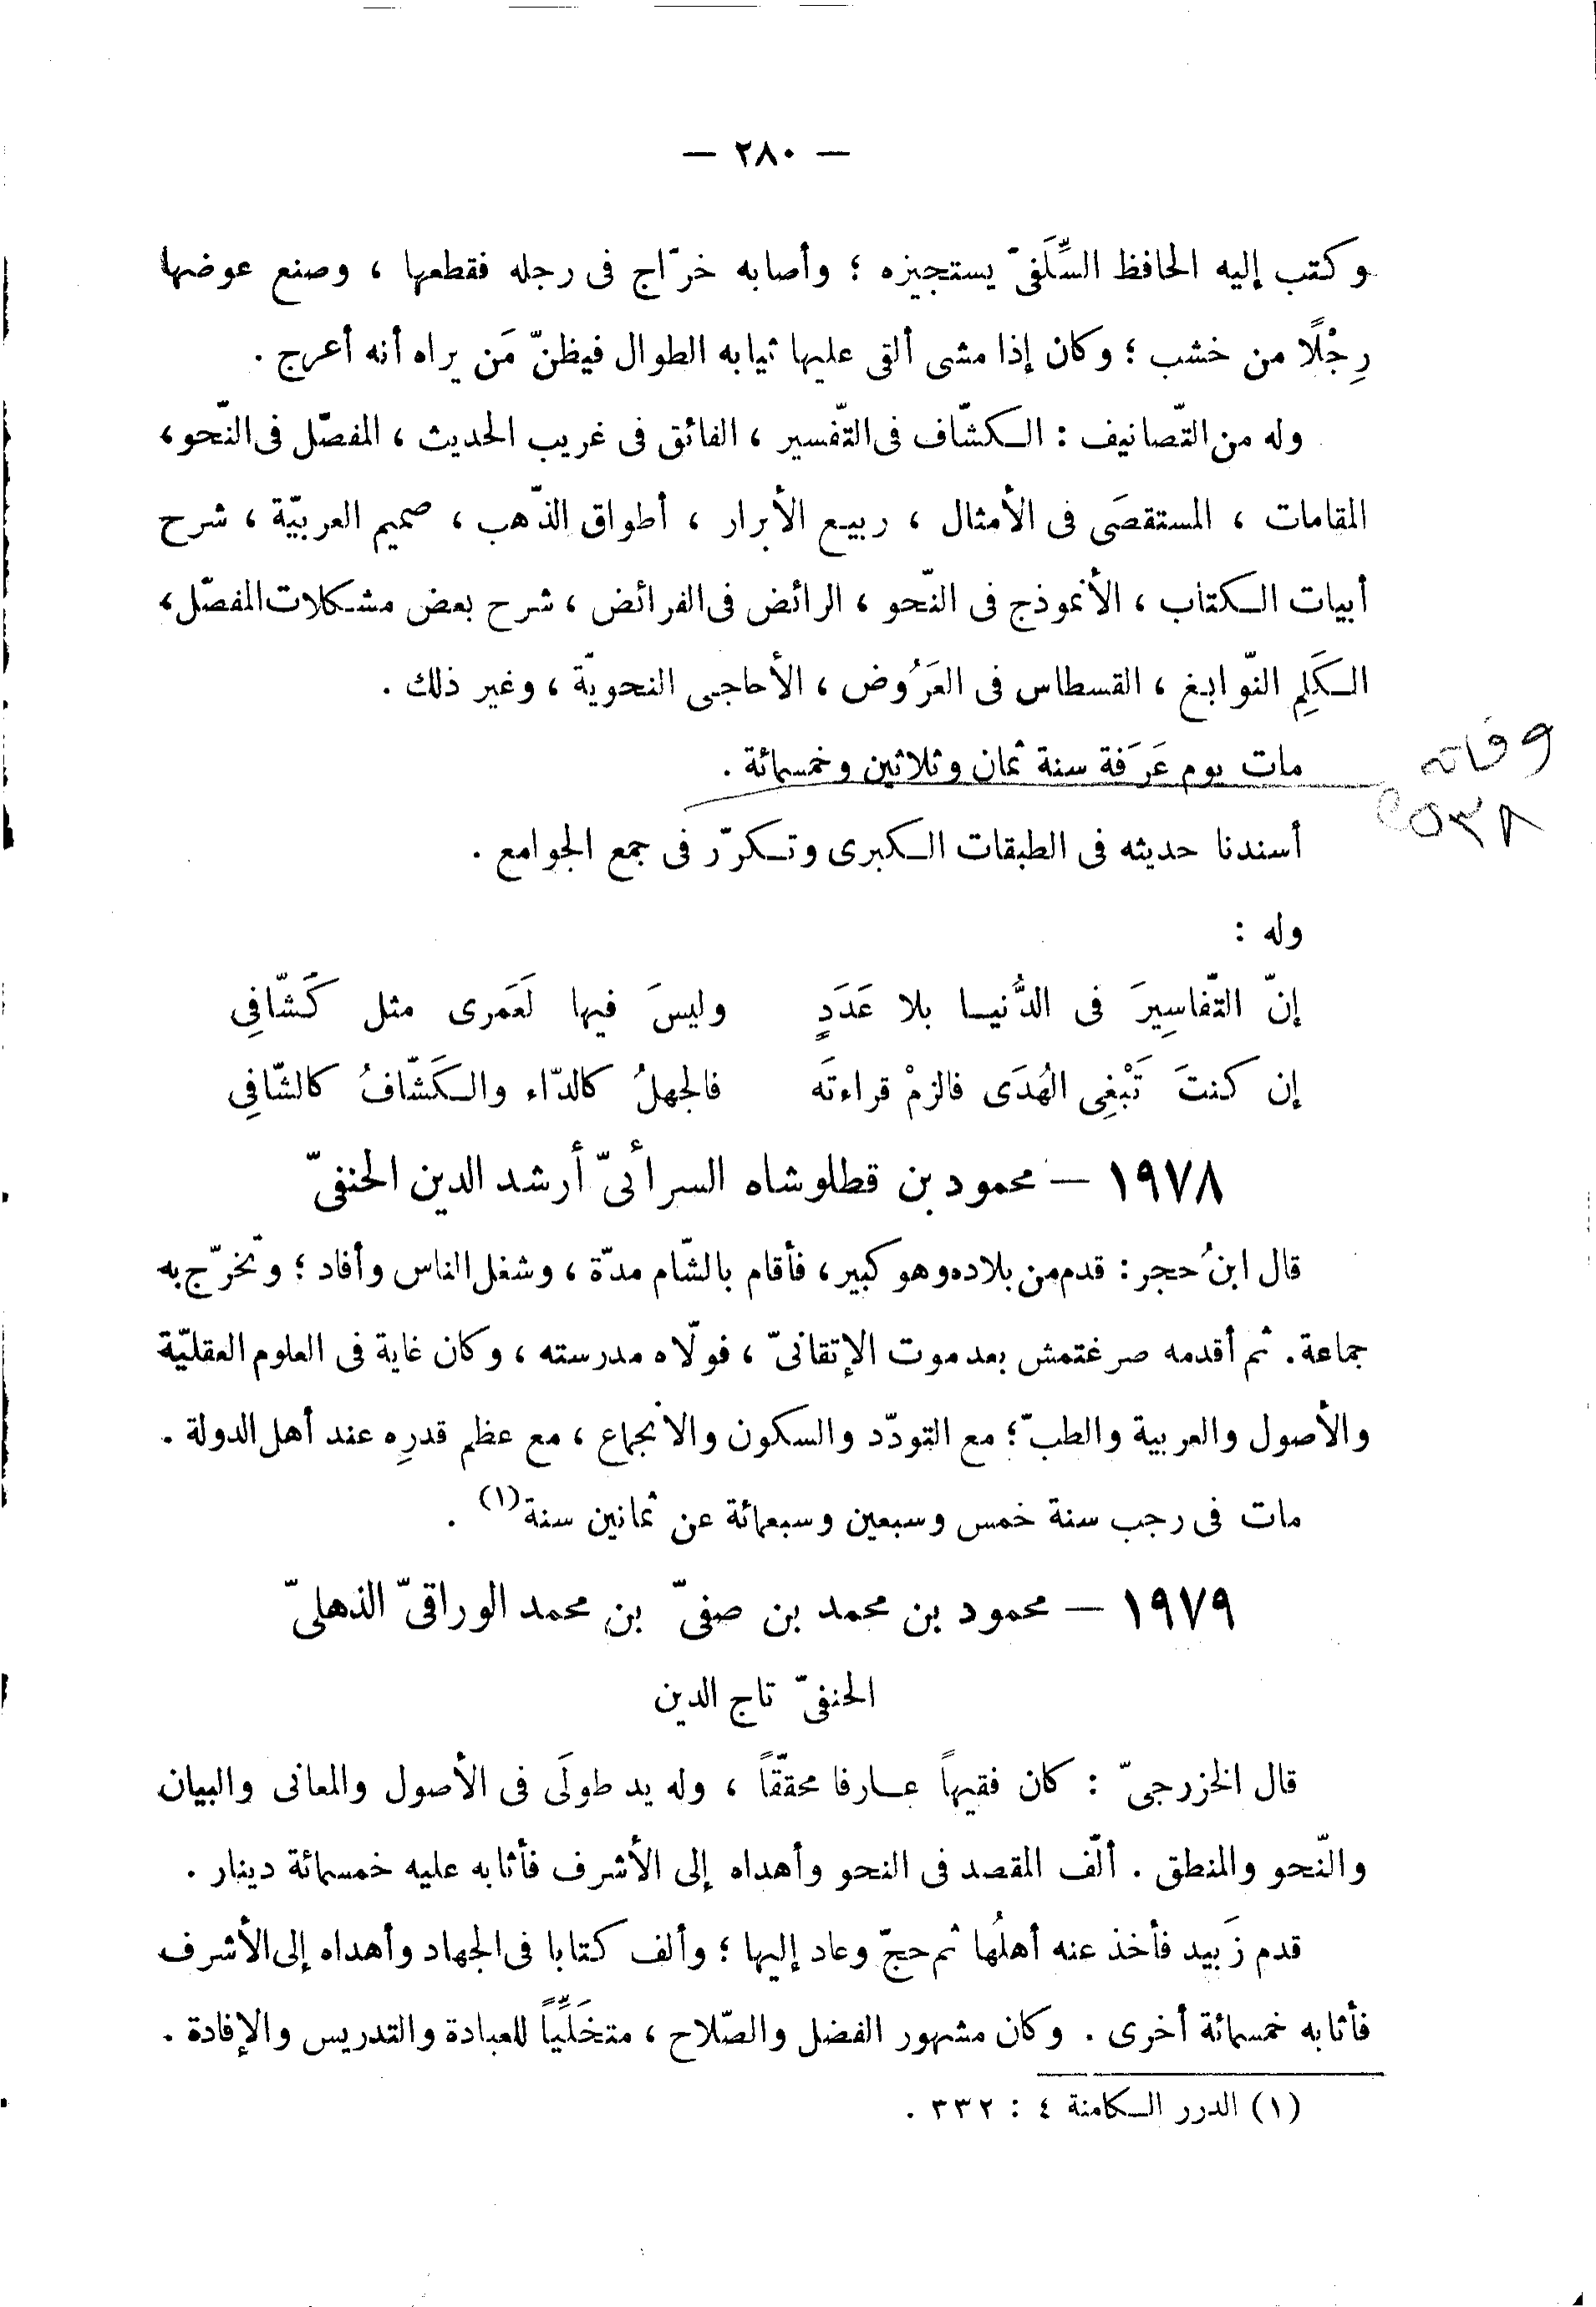 — ٢٨٠ —
وكتب إليه الحافظ السِّلَفىّ يستجيزه ؛ وأصابه خرّاج فى رجله فقطعها ، وصنع عوضها
رِجْلًا من خشب ؛ وكان إذا مشى ألقى عليها ثيابه الطوال فيظنّ مَن يراه أنه أعرج .
وله من التّصانيف : الكشّاف فى التّفسير ، الفائق فى غريب الحديث ، المفصّل فى النّحو ،
المقامات ، المستقصَى فى الأمثال ، ربيع الأبرار ، أطواق الذّهب ، صميم العربيّة ، شرح
أبيات الكتاب ، الأنموذج فى النّحو ، الرائض فى الفرائض ، شرح بعض مشكلات المفصّل ،
الكَلِم النّوابغ ، القسطاس فى العَرُوض ، الأحاجى النحويّة ، وغير ذلك .
مات يوم عَرَفة سنة ثمان وثلاثين وخمسمائة .
وفاته
٥٣٨
أسندنا حديثه فى الطبقات الكبرى وتكرّر فى جمع الجوامع .
وله :
إنّ التّفاسِيرَ فى الدُّنيا بلا عَدَدٍ وليسَ فيها لَعَمرى مثل كَشّافِي
إن كنتَ تَبْغِى الهُدَى فالزمْ قراءتَه فالجهلُ كالدّاء والكَشّافُ كالشّافِي
١٩٧٨ — محمود بن قطلوشاه السرأئىّ أرشد الدين الحنفىّ
قال ابنُ حجر : قدم من بلاده وهو كبير ، فأقام بالشّام مدّة ، وشغل الناس وأفاد ؛ وتخرّج به
جماعة . ثم أقدمه صرغتمش بعد موت الإتقانىّ ، فولّاه مدرسته ، وكان غاية فى العلوم العقليّة
والأصول والعربية والطبّ ؛ مع التودّد والسكون والانجماع ، مع عظم قدرِه عند أهل الدولة .
مات فى رجب سنة خمس وسبعين وسبعمائة عن ثمانين سنة (١) .
١٩٧٩ — محمود بن محمد بن صفىّ بن محمد الوراقىّ الذهلىّ
الحنفىّ تاج الدين
قال الخزرجىّ : كان فقيهاً عارفا محقّقاً ، وله يد طولَى فى الأصول والمعانى والبيان
والنّحو والمنطق . ألّف المقصد فى النحو وأهداه إلى الأشرف فأثابه عليه خمسمائة دينار .
قدم زَبيد فأخذ عنه أهلُها ثم حجّ وعاد إليها ؛ وألف كتابا فى الجهاد وأهداه إلى الأشرف
فأثابه خمسمائة أخرى . وكان مشهور الفضل والصّلاح ، متخَلِّياً للعبادة والتدريس والإفادة .
(١) الدرر الكامنة ٤ : ٣٣٢ .